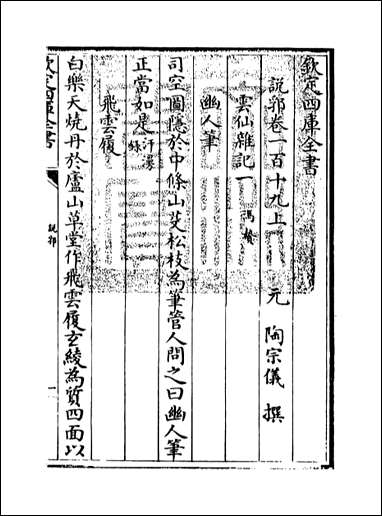 欽定四庫全書
説郛卷一百十九上
元 陶宗儀 撰
雲仙雜記一 馮贄
幽人筆
司空圖隱於中條山芟松枝為筆管人問之曰幽人筆
正當如是 汗漫録
飛雲履
白樂天燒丹於廬山草堂作飛雲履玄綾為質四面以
欽定四庫全書
説郛
一